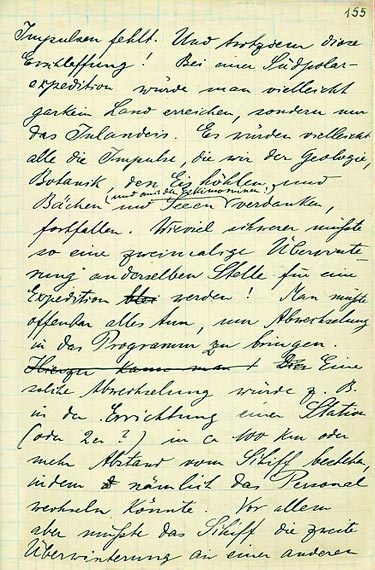 155
Impulsen fehlt. Und trotzdem diese
Erschlaffung! Bei einer Südpolar-
expedition würde man vielleicht
garkein Land erreichen, sondern nur
das Inlandeis. Es würden vielleicht
alle die Impulse, die wir der Geologie,
Botanik, den Eishöhlen, und
(und aus den Eskimoruinen)
Bächen und Seen verdanken,
fortfallen. Wieviel schwerer müsste
so eine zweimalige Überwinte-
rung an derselben Stelle für eine
Expedition werden! Man müsste
offenbar alles tun, um Abwechselung
in das Programm zu bringen.
Hierzu kann man Eine
solche Abwechselung würde z. B.
in der Errichtung einer Station
(oder 2er?) in ca 100 km oder
mehr Abstand vom Schiff bestehen,
indem nämlich das Personal
wechseln könnte. Vor allem
aber müsste das Schiff die zweite
Überwinterung an einer anderen